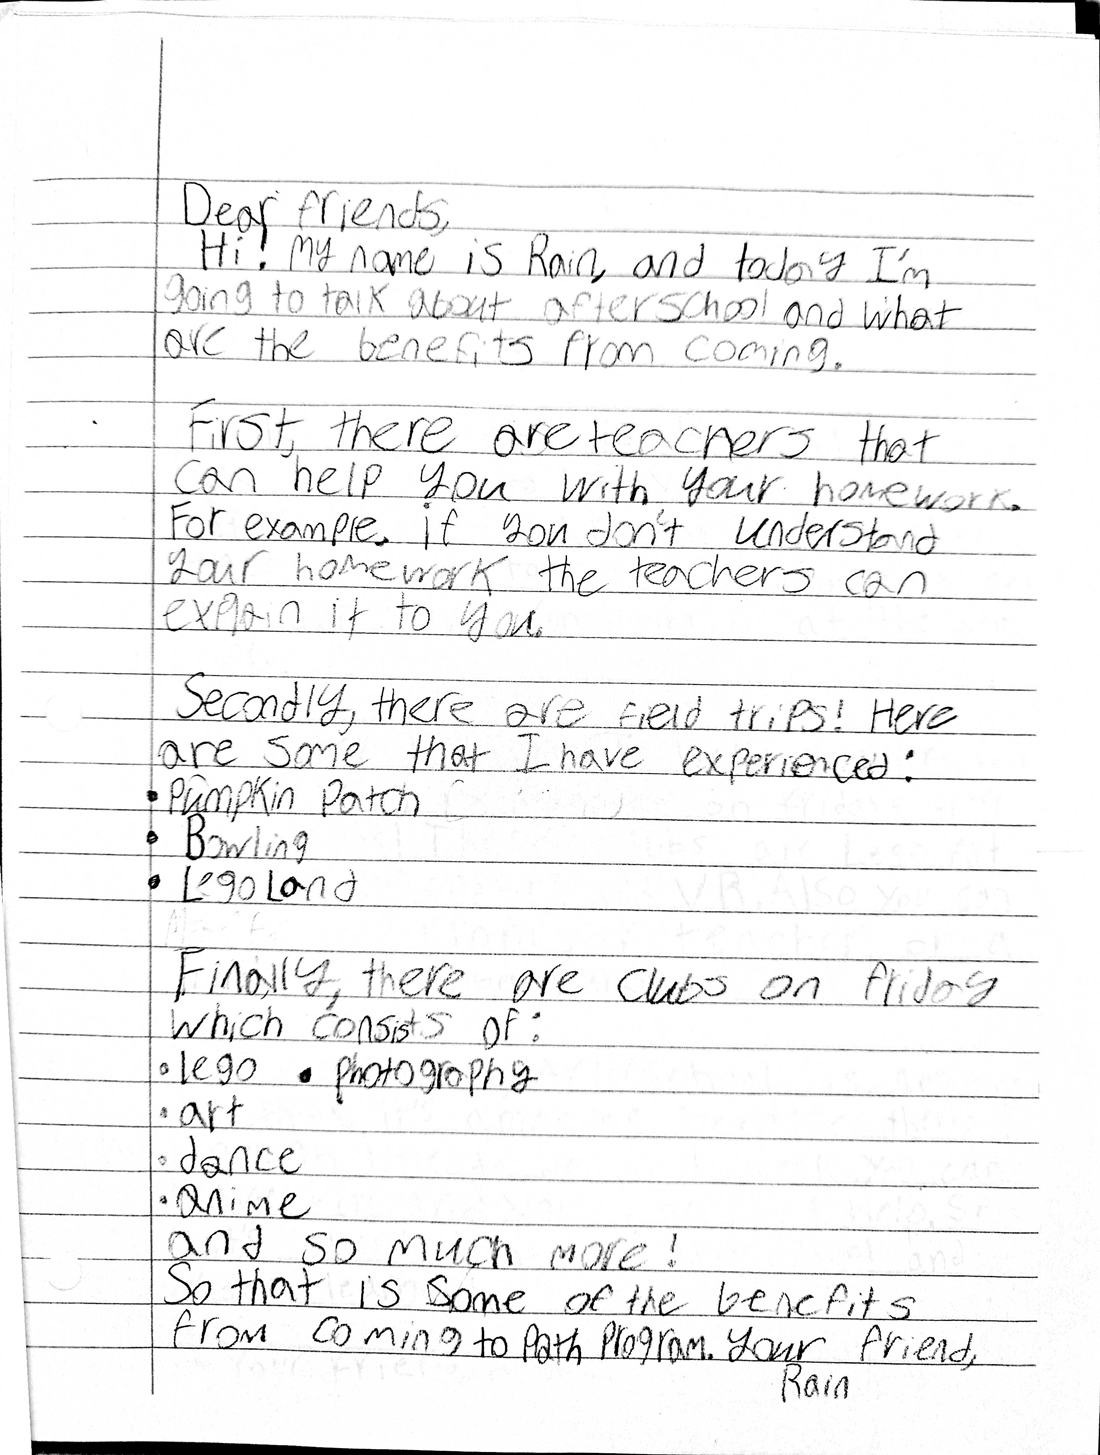 Dear friends,
Hi! My name is Rain, and today I'm
going to talk about afterschool and what
are the benefits from coming.
First, there are teachers that
can help you with your homework.
For example. if you don't understand
your homework the teachers can
explain it to you.
Secondly, there are field trips! Here
are some that I have experienced:
• Pumpkin Patch
• Bowling
• Lego Land
Finally, there are clubs on friday
which consists of:
• lego • photography
• art
• dance
• anime
and so much more!
So that is some of the benefits
from coming to Path Program. Your friend,
Rain